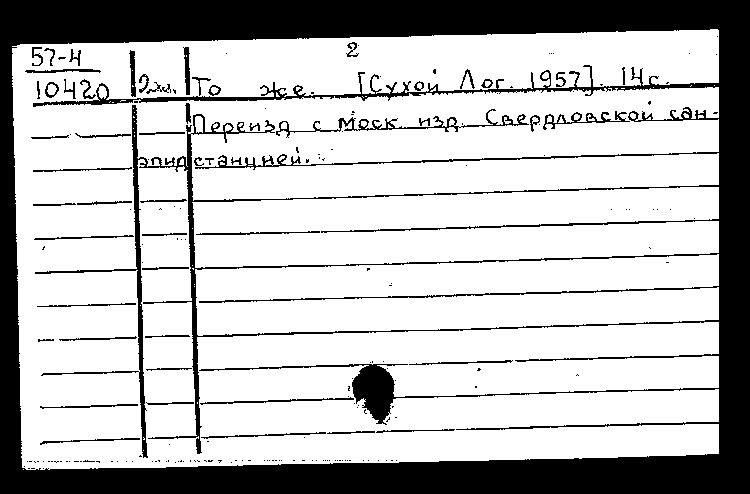 2
57-4
10420 2экз. То же. [Сухой Лог. 1957]. 14с.
Переизд с моск. изд. Свердловской сан-
эпидстанцией.